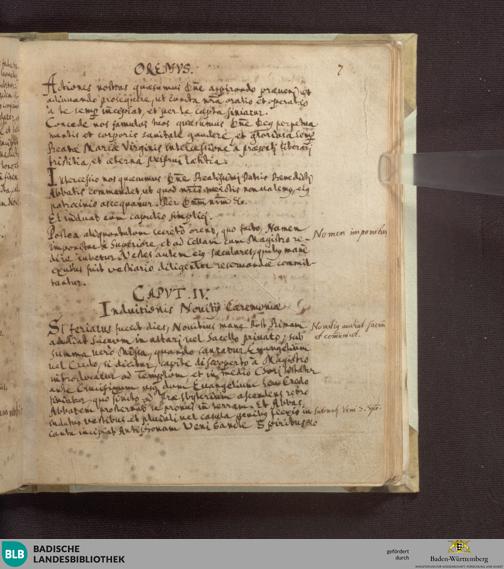 OREMVS. 7
Actiones nostras quæsumus Dne aspirando præveni et
adiuvando prosequere, ut cuncta nra oratio et operatio
a te semp incipiat, et per te cæpta finiatur.
Concede nos famulos tuos quæsumus Dne Deg perpetua
mentis et corporis sanitate gaudere, et gloriosa
Beatæ Mariæ Virginis intercessione a præsenti liberari
tristitia, et æterna perfrui lætitia.
Intercessio nos quæsumus Dne Beatissimi Patris Benedicti
Abbatis commendet ut quod meritis non valemus, eig
patrocinio assequamur. Per
Et induat eum caputio simplici.
Postea aliquantulum secreto orent, quo facto, Nomen
imponitur a Superiore, et ad Cellam cum Magistro re-
dire iubetur. Vestes autem eig sæculares, quibus
exutus fuit vestiario diligenter reservandæ commit-
tantur.
Nomen imponitur
CAPVT. IV.
Induitionis Novitij Cæremoniæ
Si feriatus succedit dies, Novitius mane post Primam
audiat Sacrum in altari vel Sacello privato; sub
summa vero Missa, quando cantatur Evangelium
vel Credo, si dicitur, capite discooperto a Magistro
introducatur ad Templum, et in medio Chori
ante Crucifixum usq dum Evangelium
finiatur quo finito ad Presbyterium ascendens retro
Abbatem prosternat se pronus in terram. Et Abbas
indutus vestibus et pluviali vel casula genibus flexis in-
cantu incipiat Antiphonam Veni Sancte Spiritus
Novitig audiat sacrum
et communicet.
BLB BADISCHE
LANDESBIBLIOTHEK
gefördert
durch
Baden-Württemberg